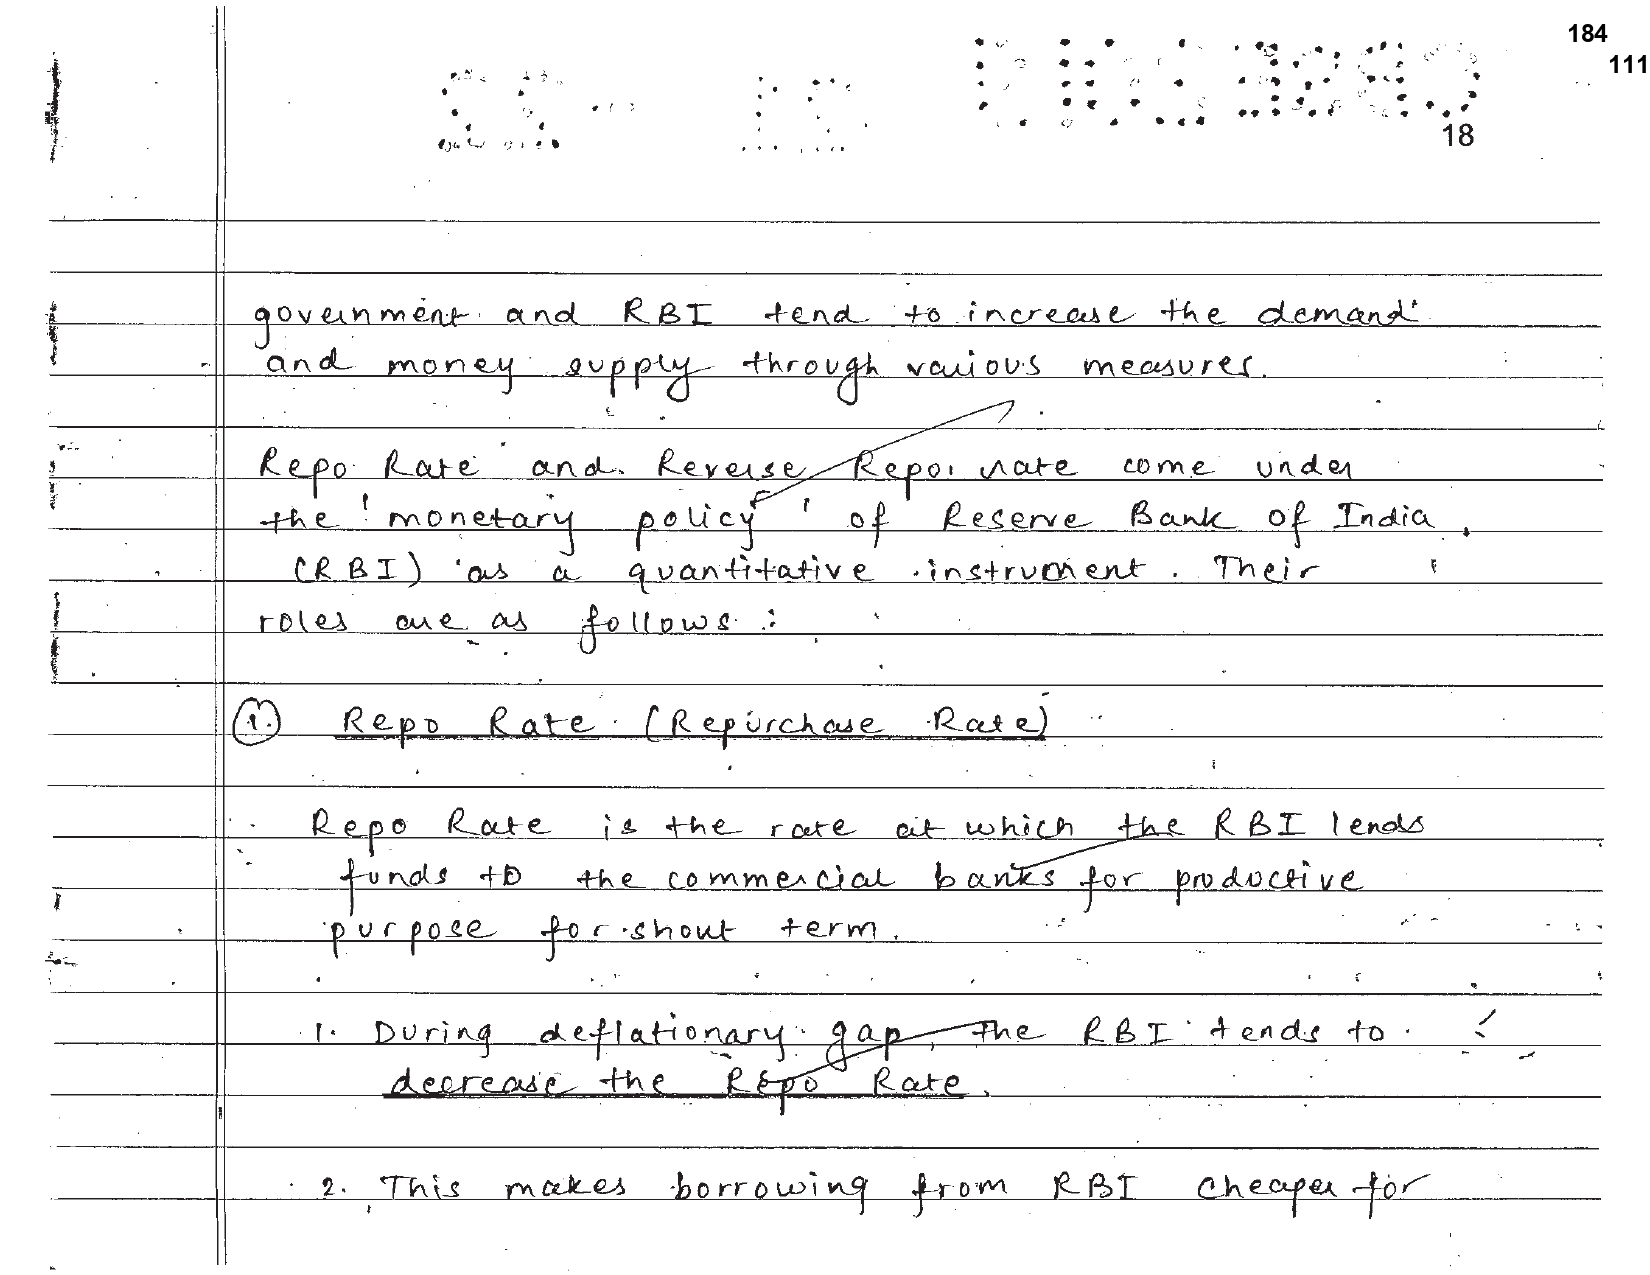 184
111
18
government and RBI tend to increase the demand
and money supply through various measures.
Repo Rate and Reverse Repo rate come under
the 'monetary policy' of Reserve Bank of India
(RBI) as a quantitative instrument. Their
roles are as follows:
1. Repo Rate (Repurchase Rate)
Repo Rate is the rate at which the RBI lends
funds to the commercial banks for productive
purpose for short term.
1. During deflationary gap, the RBI tends to
decrease the Repo Rate.
2. This makes borrowing from RBI cheaper for